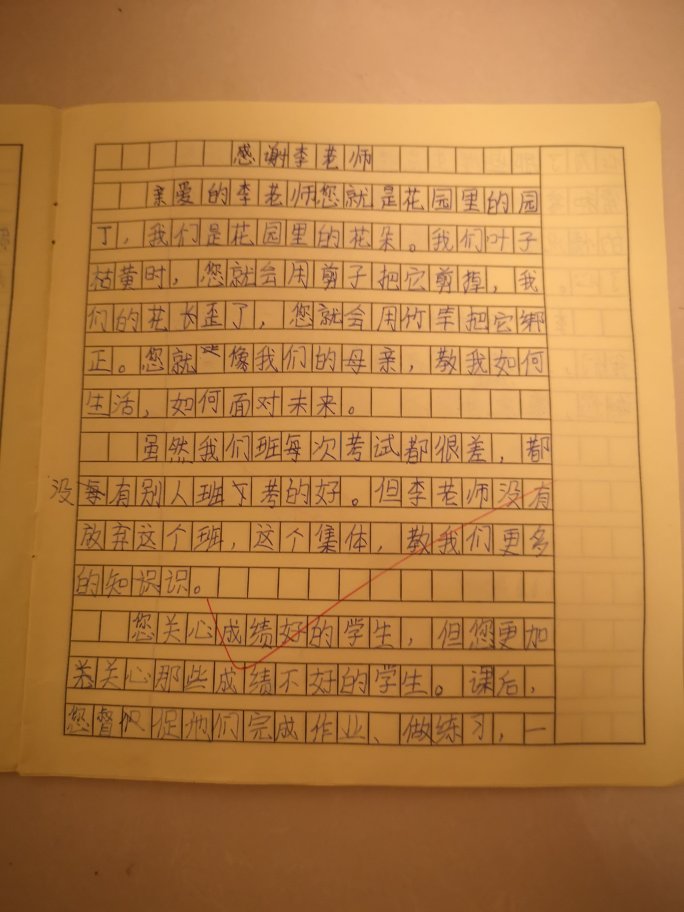 感谢李老师
亲爱的李老师您就是花园里的园
丁，我们是花园里的花朵。我们叶子
枯黄时，您就会用剪子把它剪掉，我
们的花长歪了，您就会用竹竿把它绑
正。您就是像我们的母亲，教我如何
生活，如何面对未来。
虽然我们班每次考试都很差，都
没有别人班下考的好。但李老师没有
放弃这个班，这个集体，教我们更多
的知识识。
您关心成绩好的学生，但您更加
关关心那些成绩不好的学生。课后，
您督促他们完成作业、做练习，一